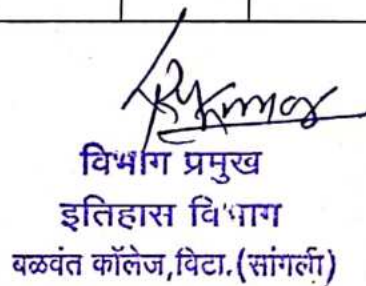 विभाग प्रमुख
इतिहास विभाग
बळवंत कॉलेज,विटा.(सांगली)